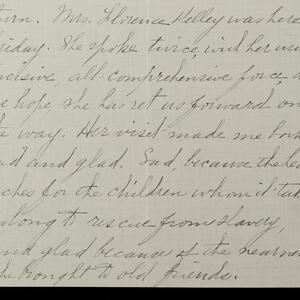 turn. Mrs. Florence Kelley was here
Friday. She spoke twice, with her usu
incisive, all-comprehensive force, a
we hope, she has set us forward on
the way. Her visit made me both
sad and glad. Sad, because the hea
aches for the children whom it tak
so long to rescue from slavery,
and glad because of the nearnes
she brought to old friends.